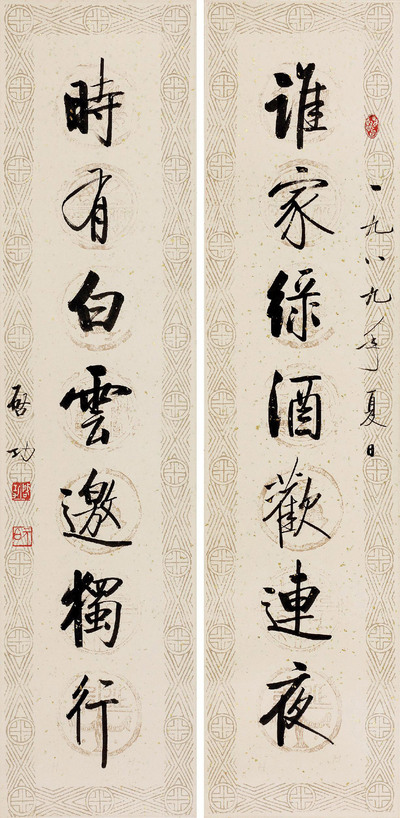 一九八九年夏日
誰家綠酒歡連夜
時有白雲邀獨行
啟功